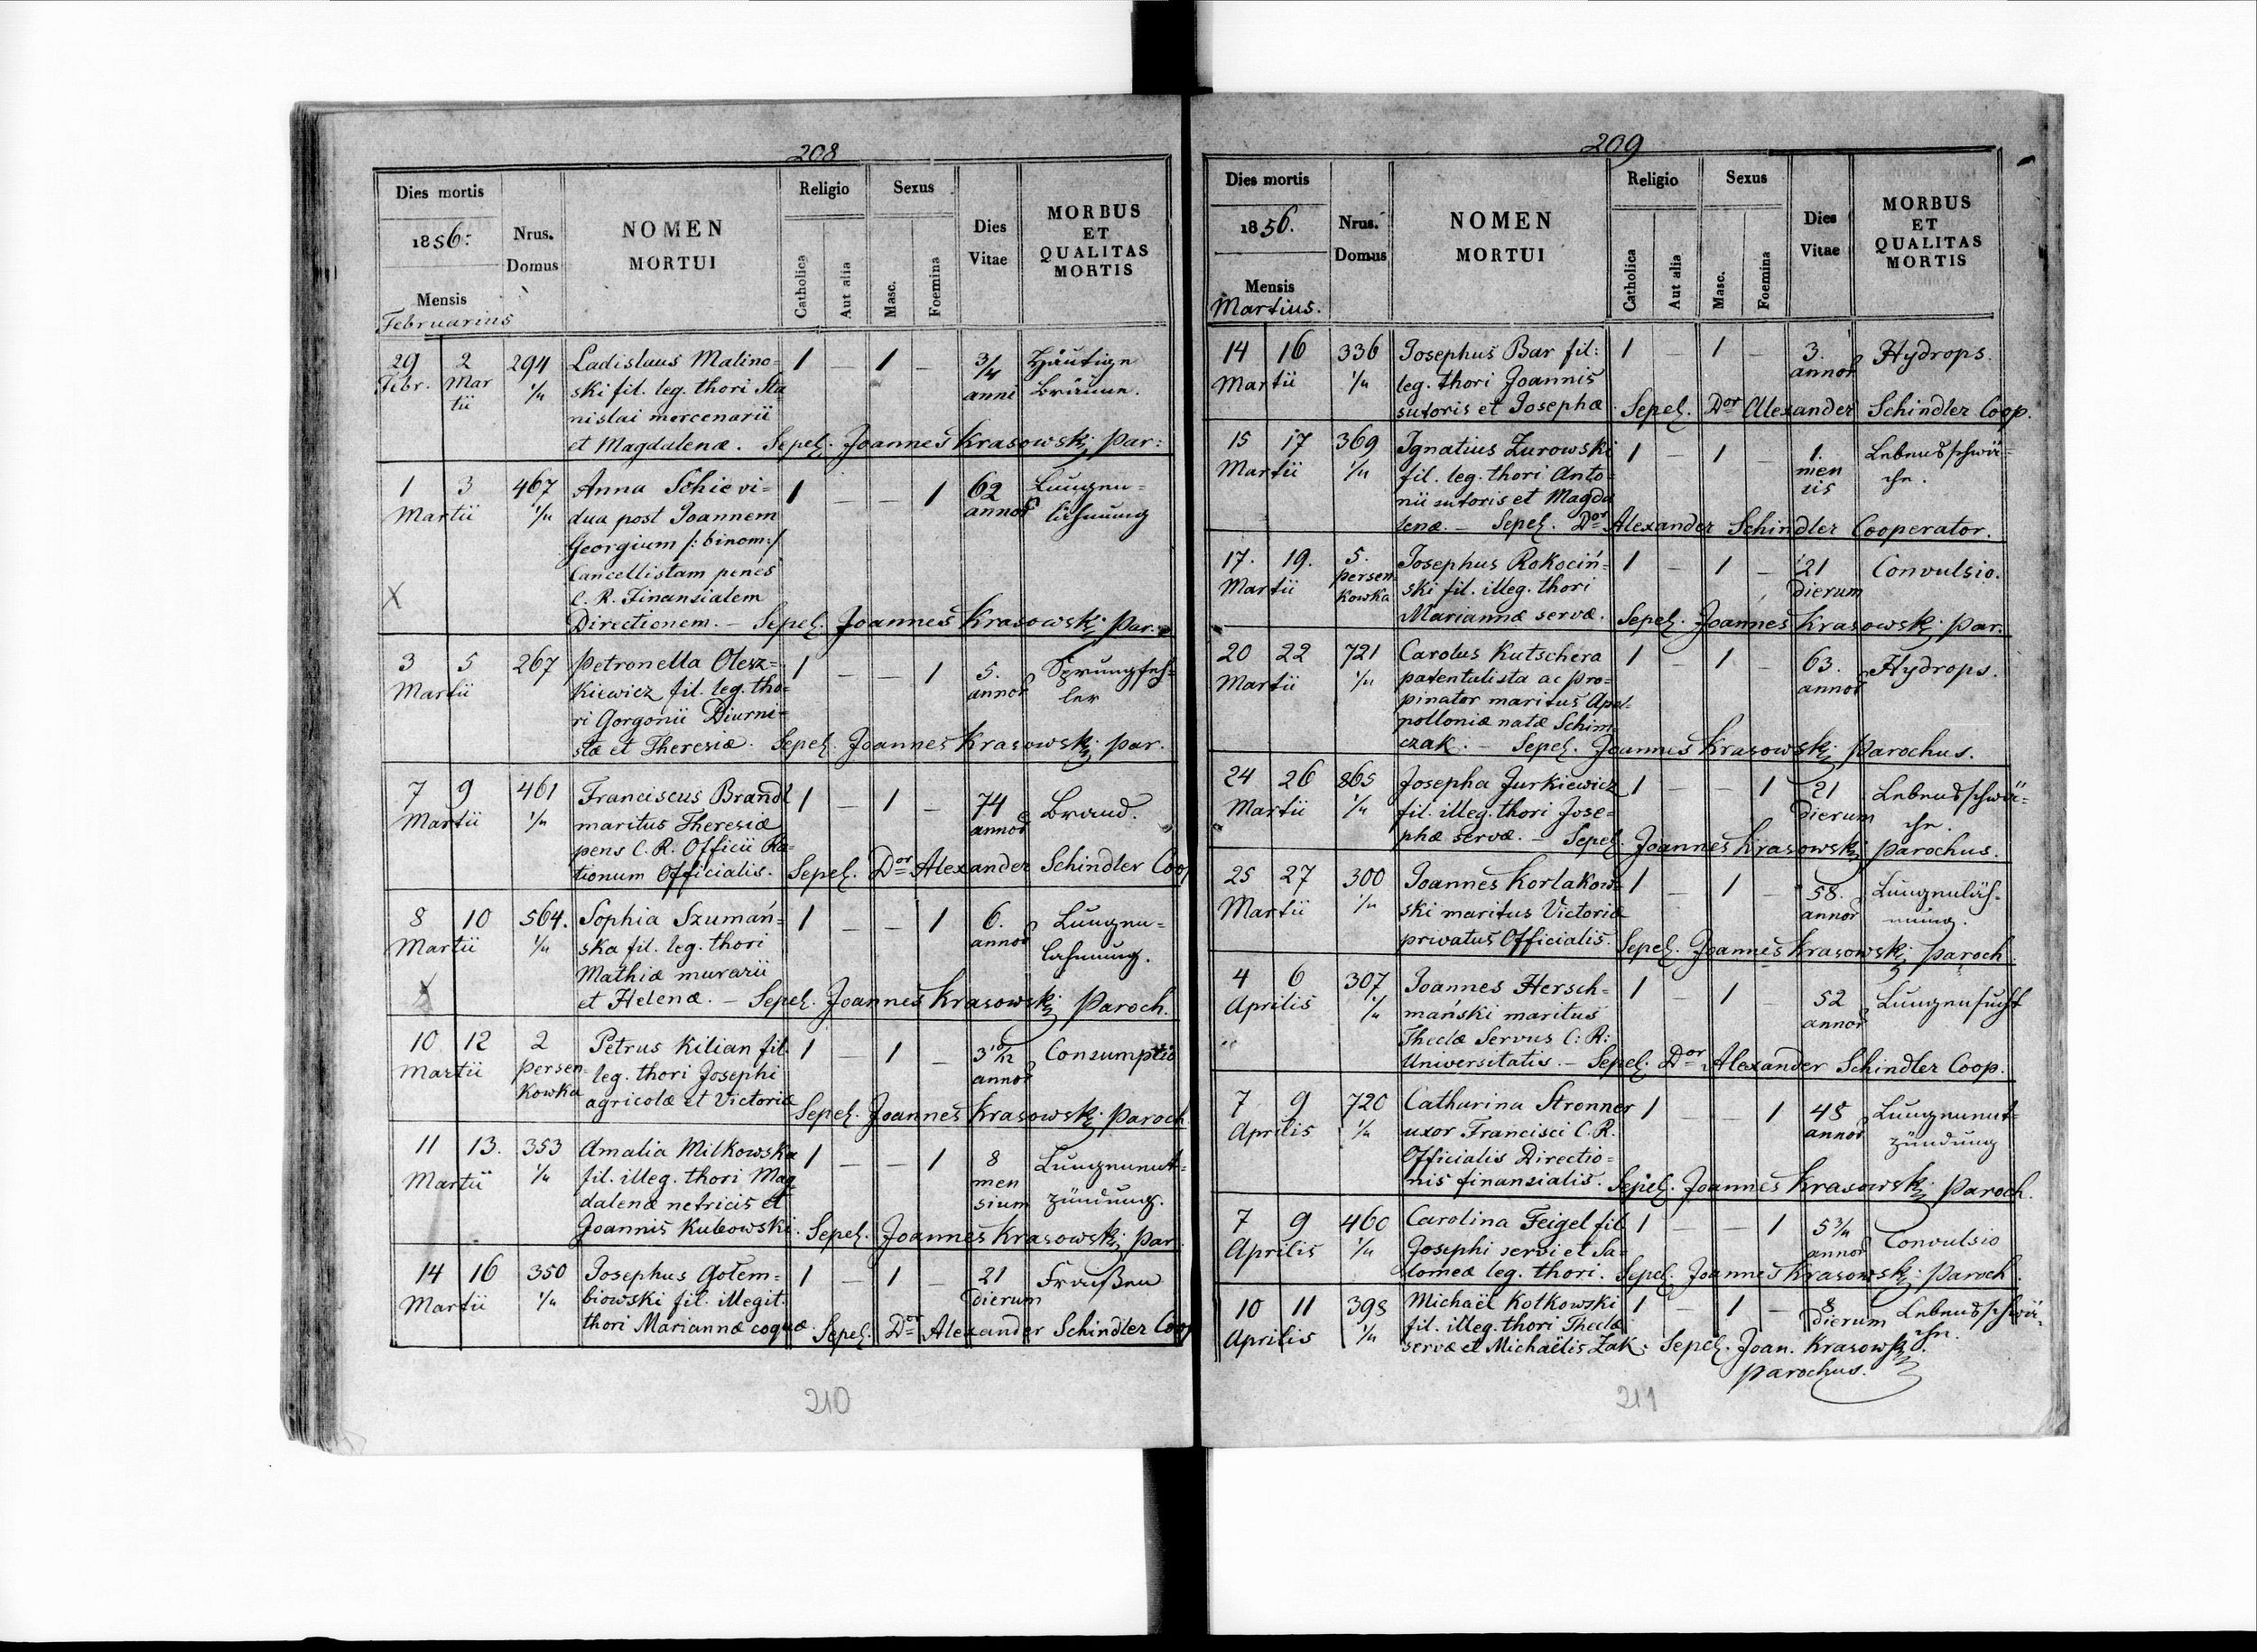 208
Dies mortis
1856.
Mensis
Februarius
Nrus.
Domus
NOMEN
MORTUI
Religio
Catholica
Aut alia
Sexus
Masc.
Foemina
Dies
Vitae
MORBUS
ET
QUALITAS
MORTIS
29 2 294 Ladislaus Malino= 1 – 1 – 3/4 Häutige
Febr. Mar 1/4 ski fil. leg. thori Sta anni Bräune.
tii nislai mercenarii
et Magdalenæ. Sepel. Joannes Krasowski Par:
1 3 467 Anna Schie vi= 1 – – 1 62 Lungen=
Martii 1/4 dua post Joannem annor lähmung
Georgium /: binom:/
Cancellistam penes
X C. R. Finansialem
Directionem. – Sepel. Joannes Krasowski Par.
3 5 267 Petronella Olesz= 1 – – 1 5.
Martii kiewicz fil. leg. tho= annor ler
ri Gorgonii Diurni=
stæ et Theresiæ. Sepel. Joannes Krasowski par.
7 9 461 Franciscus Brandl 1 – 1 – 74 Brand.
Martii 1/4 maritus Theresiæ annor
pens C. R. Officii Ra=
tionum Officialis. Sepel. Dor Alexander Schindler Coop
8 10 564. Sophia Szumań= 1 – – 1 6. Lungen=
Martii 1/4 ska fil. leg. thori annor lähmung.
Mathiæ murarii
X et Helenæ. – Sepel. Joannes Krasowski Paroch.
10 12 2 Petrus Kilian fil. 1 – 1 – 3 10/12 Consumptio
Martii Persen= leg. thori Josephi annor
kowka agricolæ et Victoriæ Sepel. Joannes Krasowski Paroch.
11 13. 353 Amalia Milkowska 1 – – 1 8 Lungenent=
Martii 1/4 fil. illeg. thori Mag men zündung.
dalenæ netricis et sium
Joannis Kubowski. Sepel. Joannes Krasowski Par.
14 16 350 Josephus Gołem= 1 – 1 – 21 Fraißen
Martii 1/4 biowski fil. illegit. dierum
thori Mariannæ coquæ. Sepel. Dor Alexander Schindler Coop
210
209
Dies mortis
1856.
Mensis
Martius.
Nrus.
Domus
NOMEN
MORTUI
Religio
Catholica
Aut alia
Sexus
Masc.
Foemina
Dies
Vitae
MORBUS
ET
QUALITAS
MORTIS
14 16 336 Josephus Bar fil: 1 – 1 – 3. Hydrops.
Martii 1/4 leg. thori Joannis annor
sutoris et Josephæ. Sepel. Dor Alexander Schindler Coop.
15 17 369 Ignatius Żurowski 1 – 1 – 1. Lebensschwä=
Martii 1/4 fil. leg. thori Anto= men che.
nii sutoris et Magda sis
lenæ. – Sepel. Dor Alexander Schindler Cooperator.
17. 19. 5. Josephus Rokociń= 1 – 1 – 21 Convulsio.
Martii Persen ski fil. illeg. thori dierum
kowka Mariannæ servæ. Sepel. Joannes Krasowski Par.
20 22 721 Carolus Kutschera 1 – 1 – 63. Hydrops.
Martii 1/4 patentalista ac pro= annor
pinator maritus Apol=
polloniæ natæ Schim
czak. – Sepel. Joannes Krasowski Parochus.
24 26 865 Josepha Jurkiewicz 1 – – 1 21 Lebensschwä=
Martii 1/4 fil. illeg. thori Jose= dierum che.
phæ servæ. – Sepel. Joannes Krasowski Parochus.
25 27 300 Joannes Korlakow= 1 – 1 – 58. Lungenläh=
Martii 1/4 ski maritus Victoriæ annor mung.
privatus Officialis. Sepel. Joannes Krasowski Paroch.
4 6 307 Joannes Hersch= 1 – 1 – 52 Lungensucht
Aprilis 1/4 mański maritus annor
Theclæ Servus C: R:
Universitatis. – Sepel. Dor Alexander Schindler Coop.
7 9 720 Catharina Stronner 1 – – 1 48 Lungenent=
Aprilis 1/4 uxor Francisci C. R. annor zündung
Officialis Directio=
nis finansialis. Sepel. Joannes Krasowski Paroch.
7 9 460 Carolina Feigel fil 1 – – 1 5 3/4 Convulsio
Aprilis 1/4 Josephi servi et Sa= annor
lomeæ leg. thori. Sepel. Joannes Krasowski Paroch.
10 11 398 Michaël Kotkowski 1 – 1 – 8 Lebensschwä=
Aprilis 1/4 fil. illeg. thori Theclæ dierum che.
servæ et Michaëlis Żak. Sepel. Joan. Krasowski
Parochus.
211